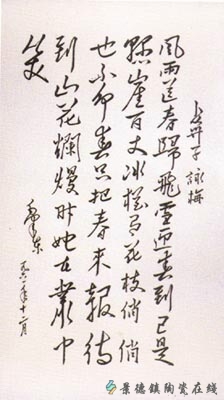 卜算子 詠梅
風雨送春歸飛雪迎春到已是
懸崖百丈冰猶有花枝俏俏
也不争春只把春來報待
到山花爛熳时她在叢中
笑
毛澤東
一九六一年十二月
景德鎮陶瓷在綫